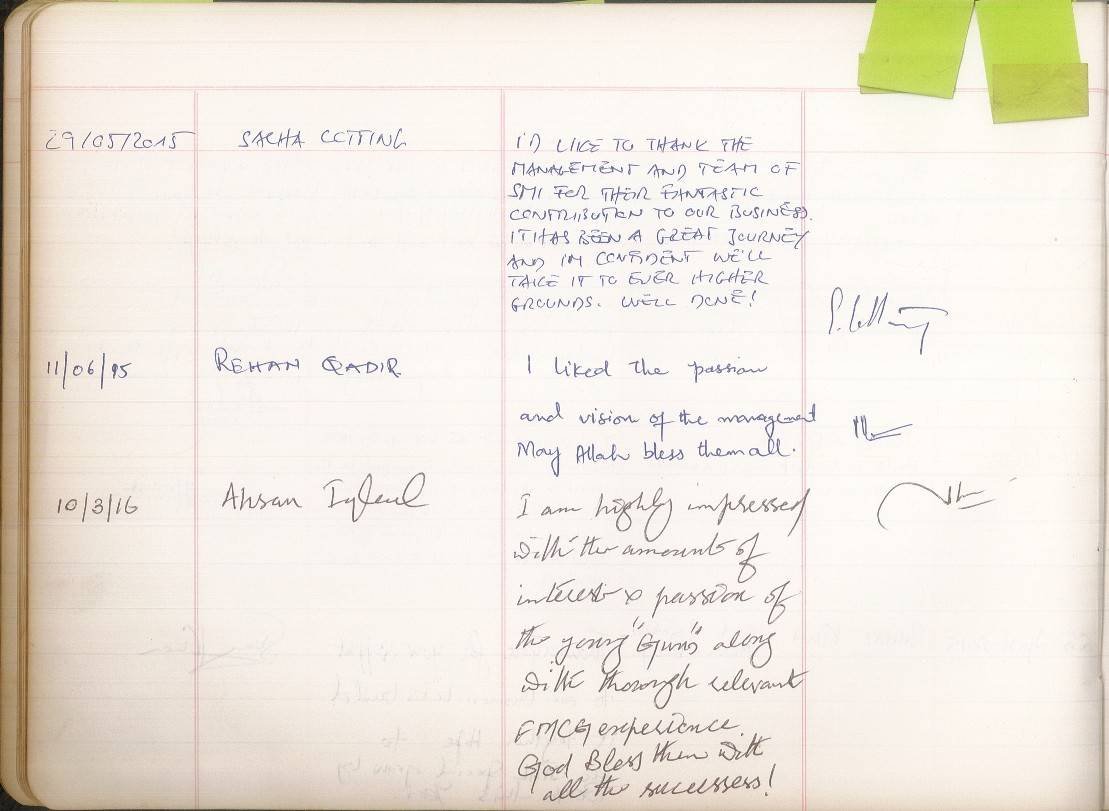 29/05/2015 SACHA COTTING I'D LIKE TO THANK THE
MANAGEMENT AND TEAM OF
SMI FOR THEIR FANTASTIC
CONTRIBUTION TO OUR BUSINESS.
IT HAS BEEN A GREAT JOURNEY
AND I'M CONFIDENT WE'LL
TAKE IT TO EVER HIGHER
GROUNDS. WELL DONE!
11/06/15 REHAN QADIR I liked the passion
and vision of the management
May Allah bless them all.
10/3/16 Ahsan I am highly impressed
with the amounts of
interest & passion of
the young "Guns" along
with thorough relevant
FMCG experience.
God Bless them with
all the successess!